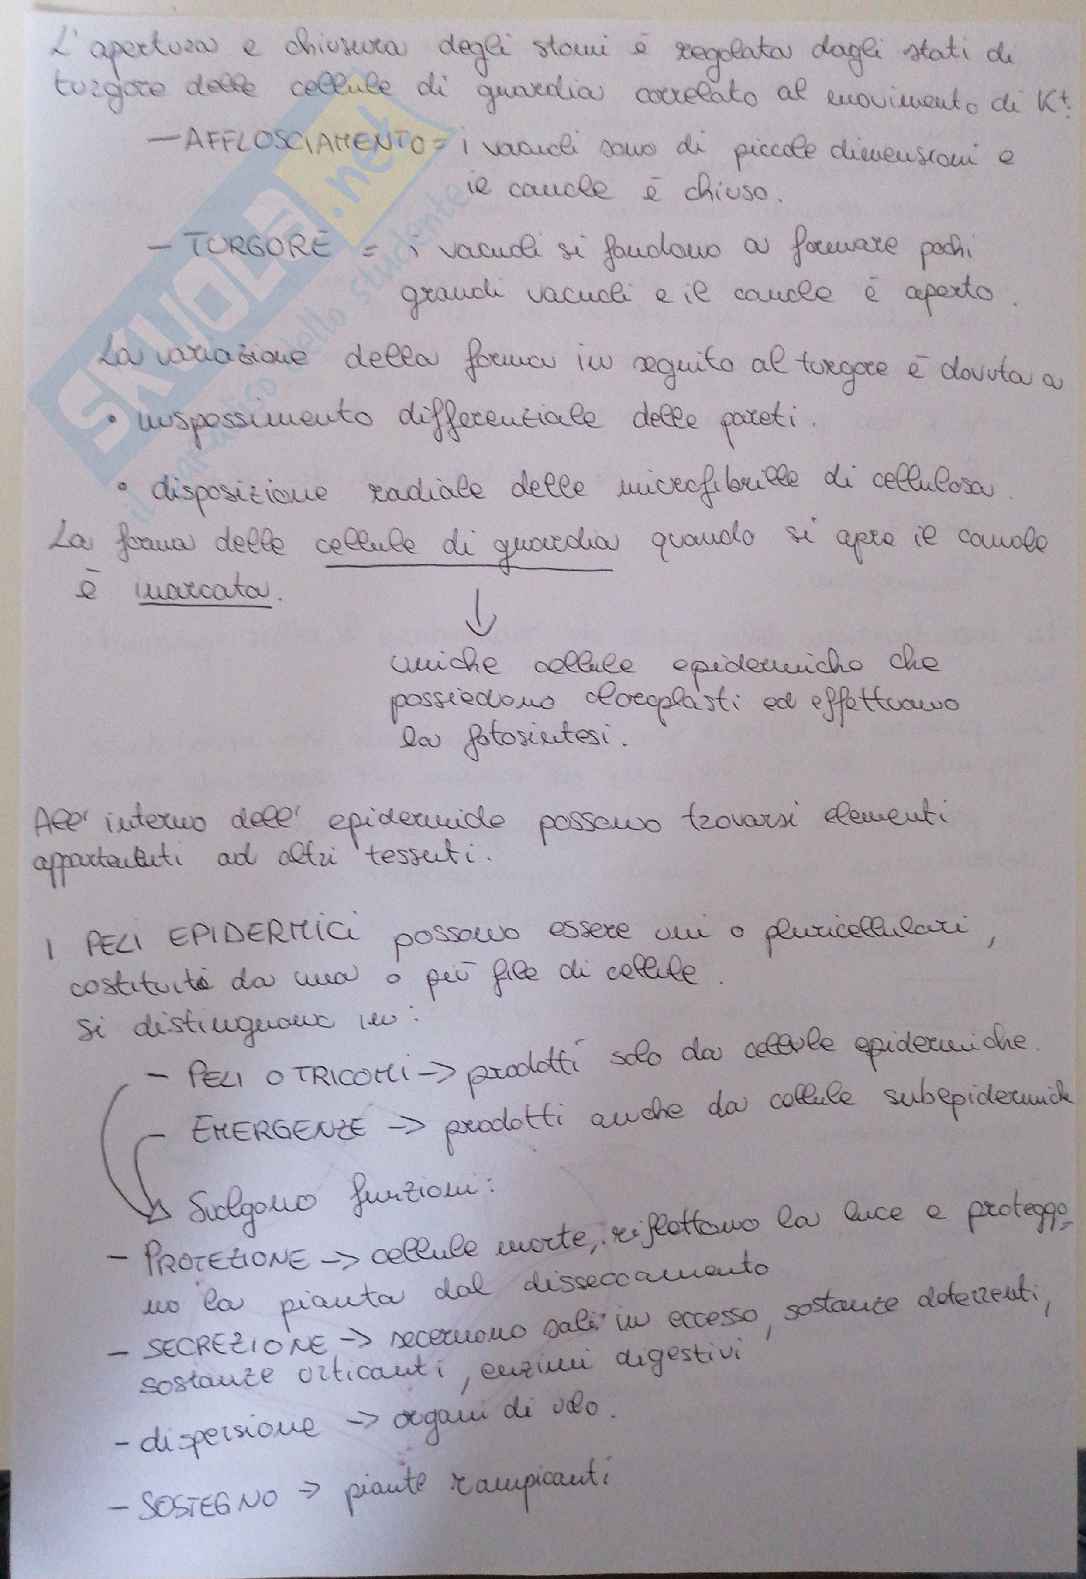 L'apertura e chiusura degli stomi è regolata dagli stati di
turgore delle cellule di guardia correlato al movimento di K+.
— AFFLOSCIAMENTO = i vacuoli sono di piccole dimensioni e
il canale è chiuso.
— TURGORE = i vacuoli si fondono a formare pochi
grandi vacuoli e il canale è aperto.
La variazione della forma in seguito al turgore è dovuta a
• inspessimento differenziale delle pareti.
• disposizione radiale delle microfibrille di cellulosa.
La forma delle cellule di guardia quando si apre il canale
è marcata.
↓
uniche cellule epidermiche che
possiedono cloroplasti ed effettuano
la fotosintesi.
All'interno dell'epidermide possono trovarsi elementi
appartenenti ad altri tessuti.
I PELI EPIDERMICI possono essere uni o pluricellulari,
costituiti da una o più file di cellule.
Si distinguono in:
— PELI O TRICOMI -> prodotti solo da cellule epidermiche.
— EMERGENZE -> prodotti anche da cellule subepidermich
Svolgono funzioni:
— PROTEZIONE -> cellule morte, riflettono la luce e proteggo-
no la pianta dal disseccamento
— SECREZIONE -> secernono sali in eccesso, sostanze deterrenti,
sostanze urticanti, enzimi digestivi
— dispersione -> organi di volo.
— SOSTEGNO -> piante rampicanti
SKUOLA.net
il paradiso dello studente